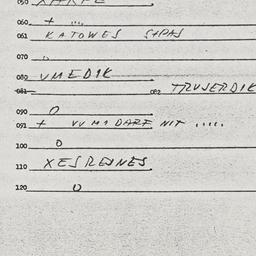 050
060 + ....
061 KATOWES STPAS
070 o
080 VMEDIK
081 082 TRUSERDIK
090 O
091 + VVMI DARF NIT .....
100 O
110 XESREJNES
120 O